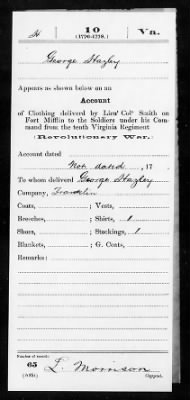 H 10 Va.
(1776-1778.)
George Hazley
Appears as shown below on an
Account
of Clothing delivered by Lieu' Colo Smith on
Fort Mifflin to the Soldiers under his Com-
mand from the tenth Virginia Regiment
(Revolutionary War.)
Account dated
Not dated, 17
To whom deliverd George Hazley
Company, Franklin
Coats, Vests,
Breeches, Shirts, 1
Shoes, Stockings, 1
Blankets, G. Coats,
Remarks:
Number of record:
65 L. Morrison
Copyist.